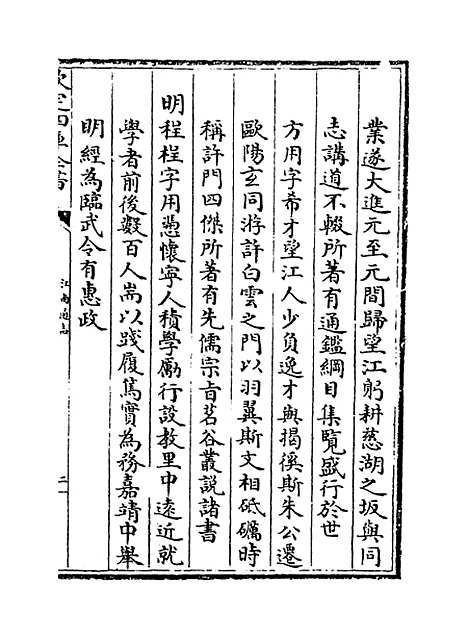 業遂大進元至元間歸望江躬耕慈湖之坂與同
志講道不輟所著有通鑑綱目集覽盛行於世
方用字希才望江人少負逸才與揭徯斯朱公遷
歐陽玄同游許白雲之門以羽翼斯文相砥礪時
稱許門四傑所著有先儒宗旨茗谷叢説諸書
明程桯字用慿懷寧人積學勵行設教里中遠近就
學者前後數百人耑以踐履篤實為務嘉靖中舉
明經為臨武令有惠政
欽定四庫全書
江南通志